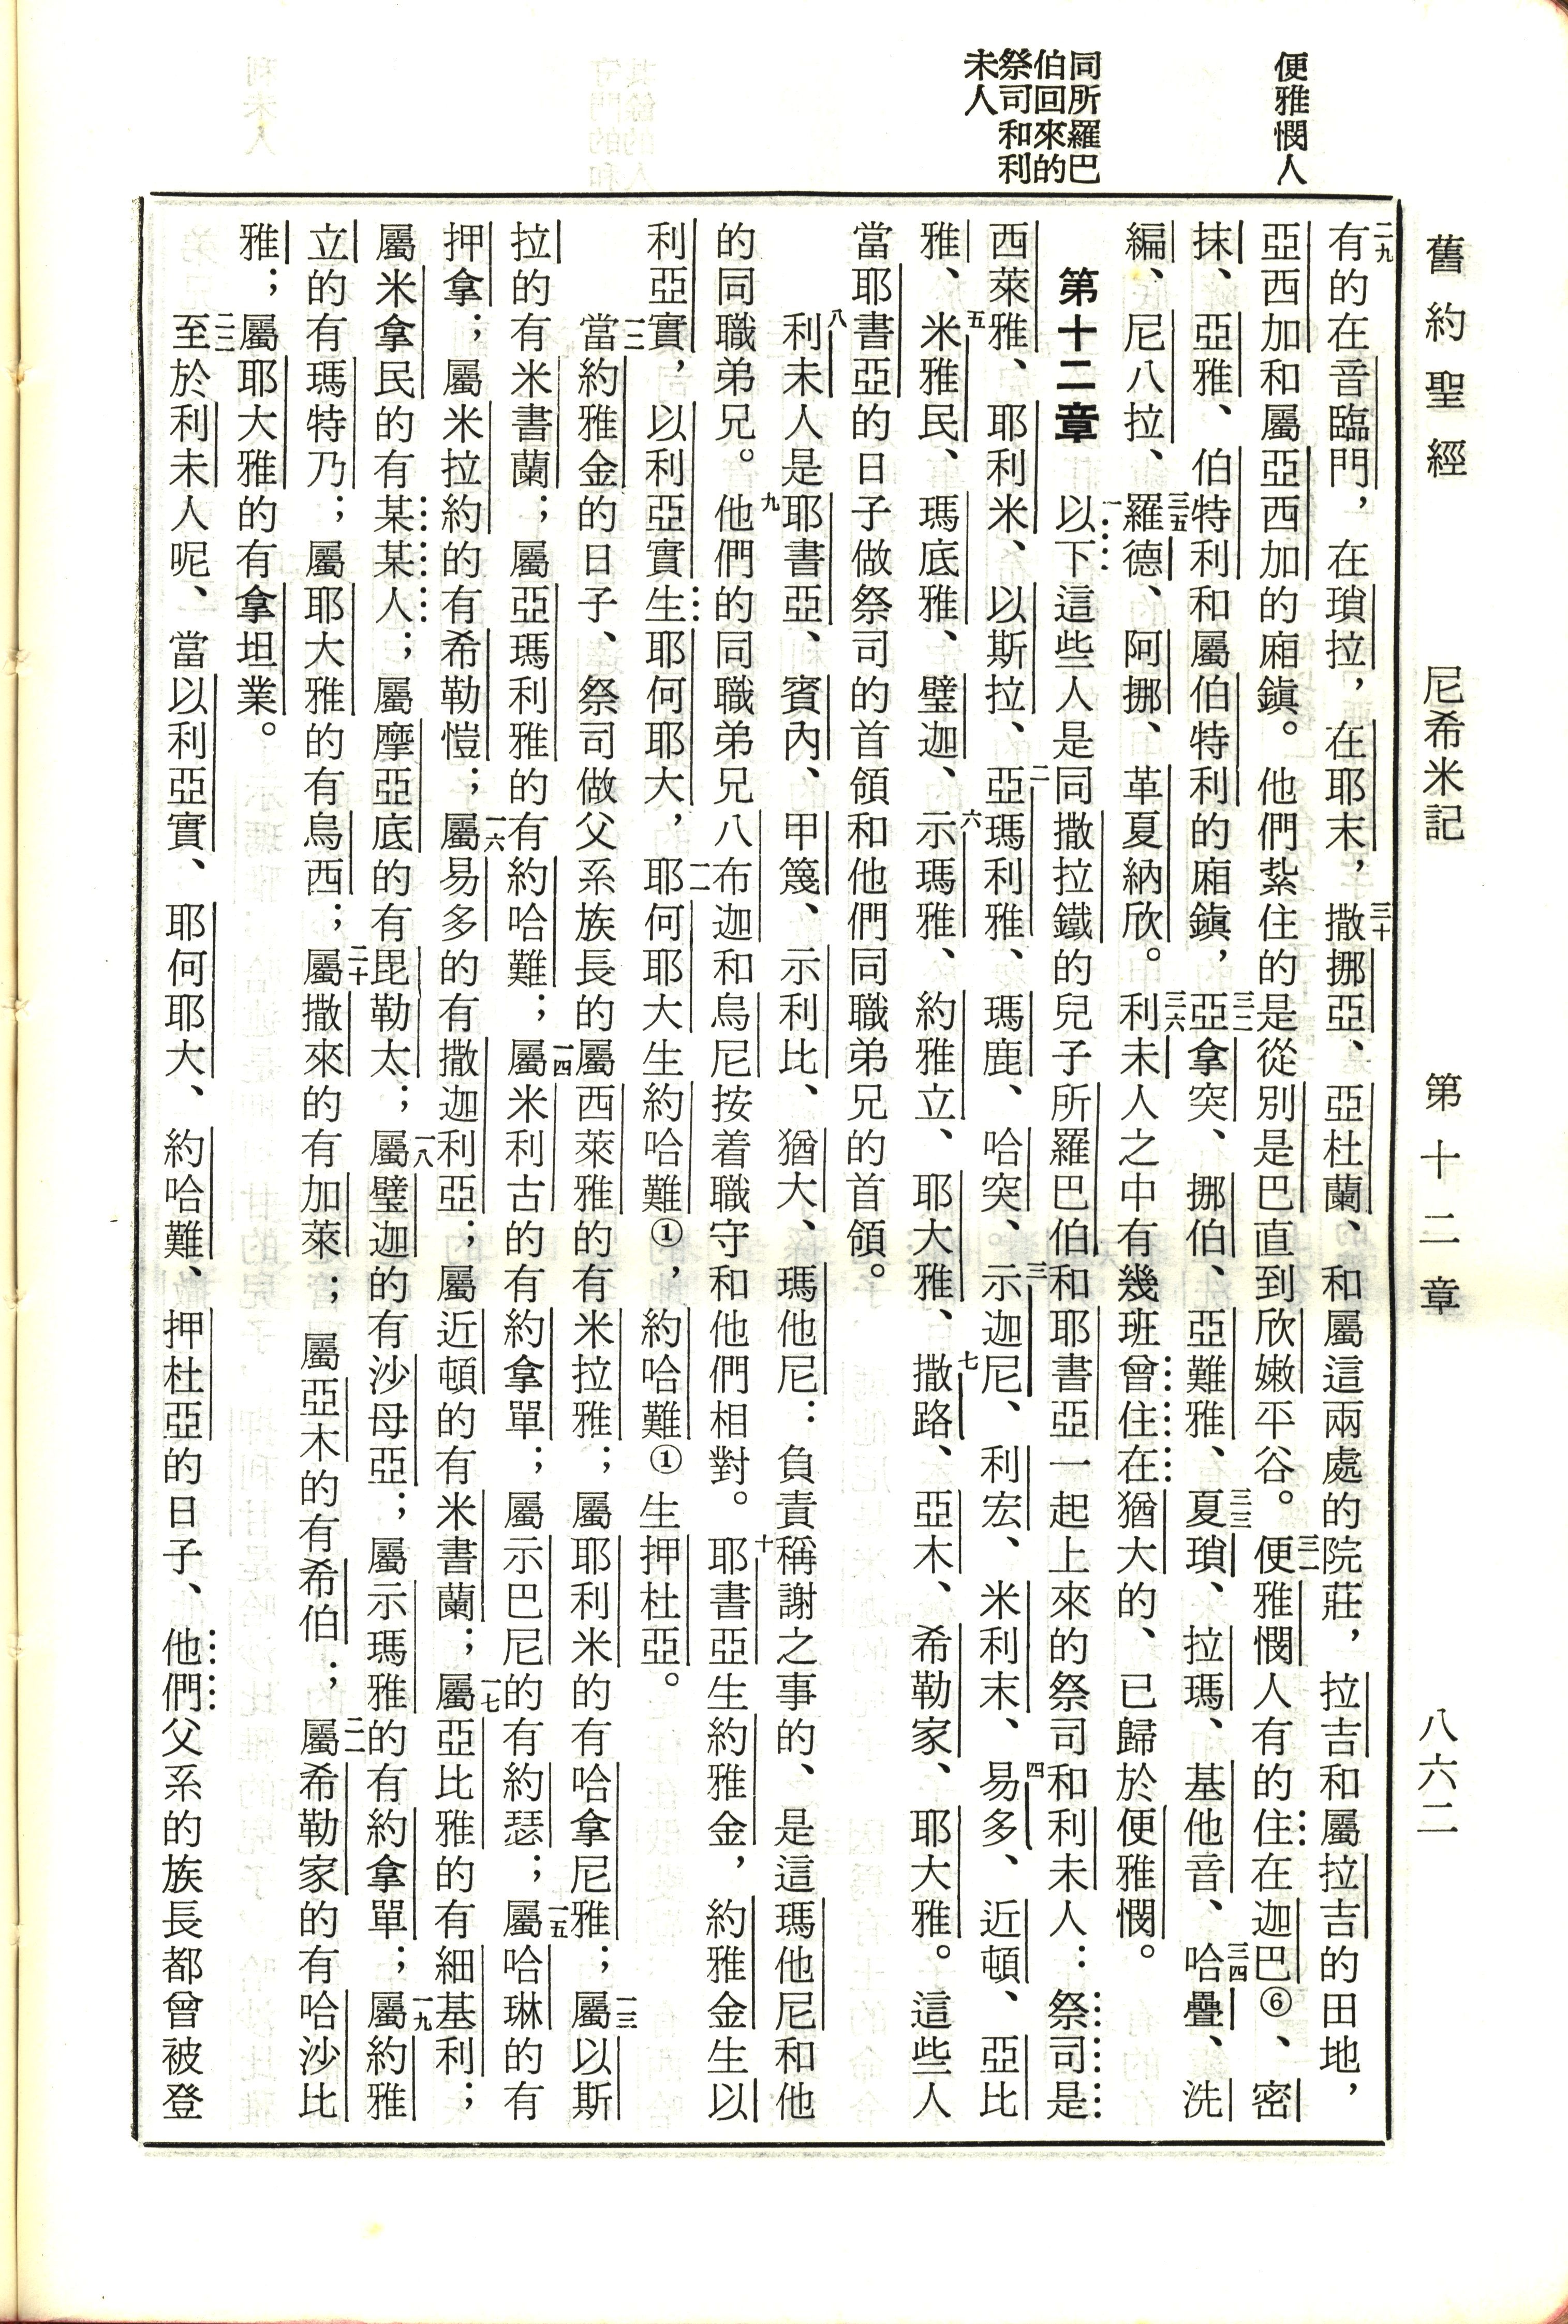 舊約聖經　尼希米記　第十二章　八六二
便雅憫人
同所羅巴
伯回來的
祭司和利
未人
二九有的在音臨門，在瑣拉，在耶末，三十撒挪亞、亞杜蘭、和屬這兩處的院莊，拉吉和屬拉吉的田地，
亞西加和屬亞西加的廂鎮。他們紮住的是從別是巴直到欣嫩平谷。三一便雅憫人有的住在迦巴⑥、密
抹、亞雅、伯特利和屬伯特利的廂鎮，三二亞拿突、挪伯、亞難雅、三三夏瑣、拉瑪、基他音、三四哈疊、洗
編、尼八拉、三五羅德、阿挪、革夏納欣。三六利未人之中有幾班曾住在猶大的、已歸於便雅憫。
第十二章　一以下這些人是同撒拉鐵的兒子所羅巴伯和耶書亞一起上來的祭司和利未人：祭司是
西萊雅、耶利米、以斯拉、二亞瑪利雅、瑪鹿、哈突、三示迦尼、利宏、米利末、四易多、近頓、亞比
雅、五米雅民、瑪底雅、璧迦、六示瑪雅、約雅立、耶大雅、七撒路、亞木、希勒家、耶大雅。這些人
當耶書亞的日子做祭司的首領和他們同職弟兄的首領。
八利未人是耶書亞、賓內、甲篾、示利比、猶大、瑪他尼：負責稱謝之事的、是這瑪他尼和他
的同職弟兄。九他們的同職弟兄八布迦和烏尼按着職守和他們相對。十耶書亞生約雅金，約雅金生以
利亞實，以利亞實生耶何耶大，一一耶何耶大生約哈難①，約哈難①生押杜亞。
一二當約雅金的日子、祭司做父系族長的屬西萊雅的有米拉雅；屬耶利米的有哈拿尼雅；一三屬以斯
拉的有米書蘭；屬亞瑪利雅的有約哈難；一四屬米利古的有約拿單；屬示巴尼的有約瑟；一五屬哈琳的有
押拿；屬米拉約的有希勒愷；一六屬易多的有撒迦利亞；屬近頓的有米書蘭；一七屬亞比雅的有細基利；
屬米拿民的有某某人；屬摩亞底的有毘勒太；一八屬璧迦的有沙母亞；屬示瑪雅的有約拿單；一九屬約雅
立的有瑪特乃；屬耶大雅的有烏西；二十屬撒來的有加萊；屬亞木的有希伯；二一屬希勒家的有哈沙比
雅；屬耶大雅的有拿坦業。
二二至於利未人呢、當以利亞實、耶何耶大、約哈難、押杜亞的日子、他們父系的族長都曾被登